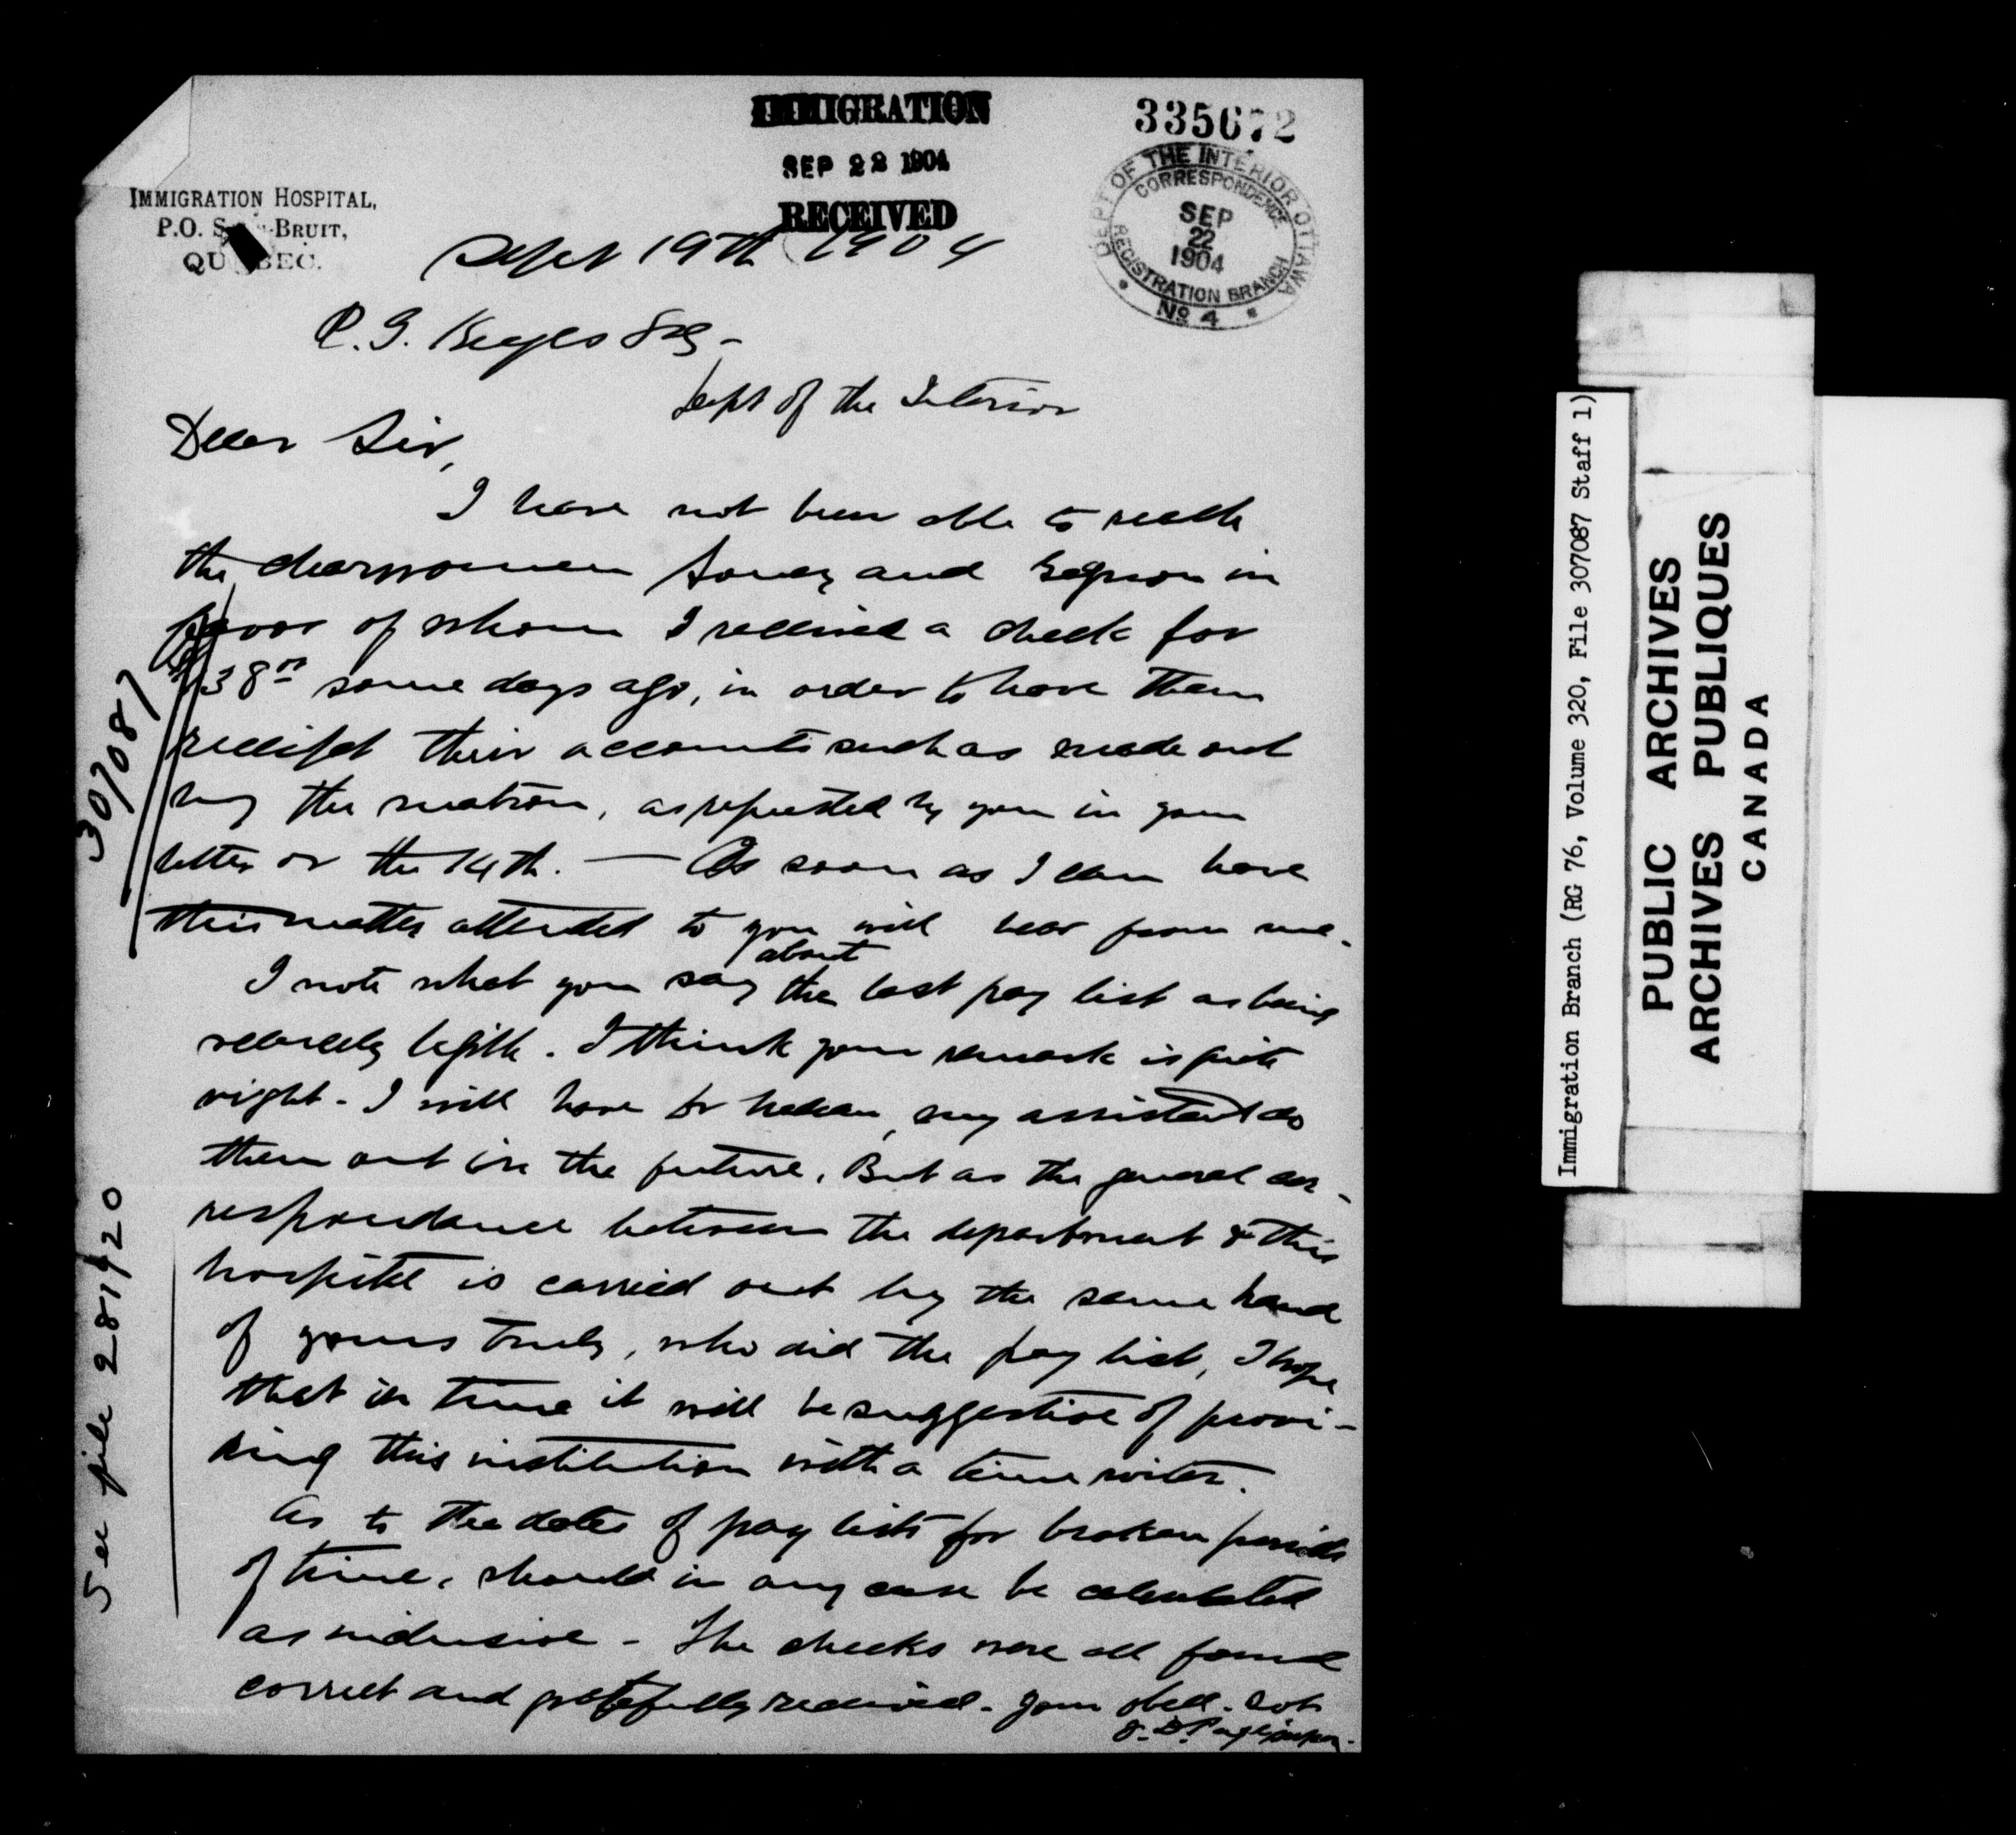 IMMIGRATION
SEP 22 1904
RECEIVED
335672
DEPT OF THE INTERIOR OTTAWA
CORRESPONDENCE
SEP
22
1904
REGISTRATION BRANCH
No 4
IMMIGRATION HOSPITAL,
P.O. -BRUIT,
QU BEC.
Sept 19th 1904
P. G. Keyes Esq -
Dept of the Interior
Dear Sir,
I have not been able to reach
the charwomen and in
favor of whom I received a check for
38 some days ago, in order to have them
receipt their accounts such as made out
by the matron, as requested by you in your
letter of the 14th. — As soon as I can have
this matter attended to you will hear from me.
I note what you say about the last pay list as being
scarcely legible. I think your remark is quite
right - I will have Dr my assistant do
them out in the future. But as the general cor-
respondance between the department & this
hospital is carried out by the same hand
of yours truly, who did the pay list, I hope
that in time it will be suggestive of provi-
ding this institution with a writer.
As to the dates of pay lists for broken periods
of time, should in any case be calculated
as inclusive - The checks were all found
correct and gratefully received. Your obed. Svt
307087
See file 281420
Immigration Branch (RG 76, Volume 320, File 307087 Staff 1)
PUBLIC ARCHIVES
ARCHIVES PUBLIQUES
CANADA